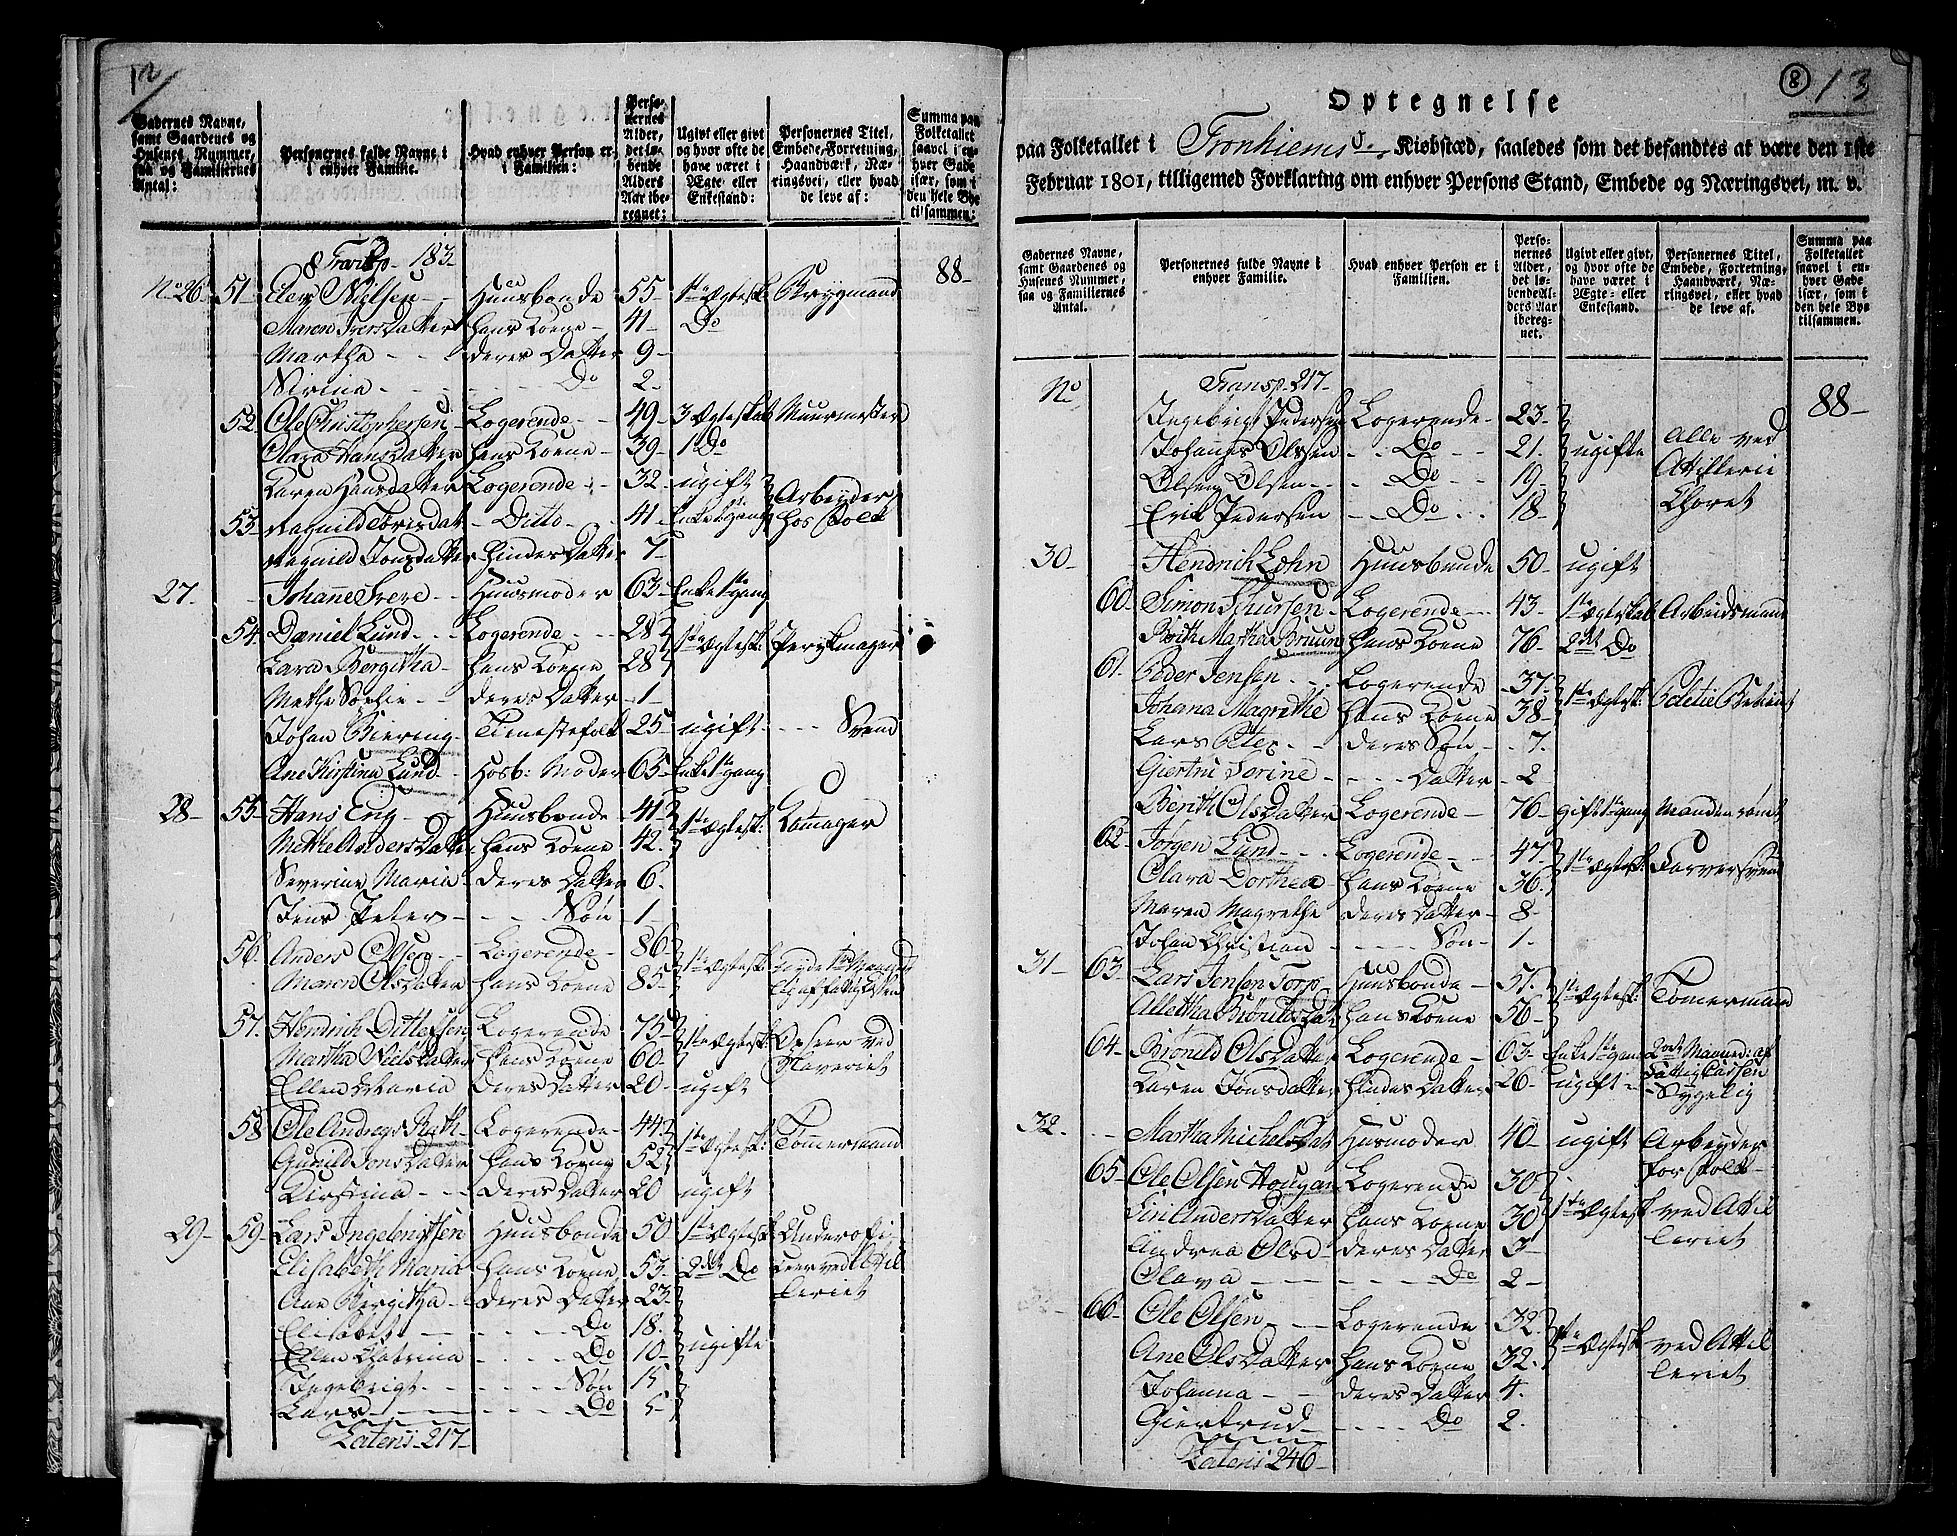 12
Gadernes Navne, samt Gaardenes og Husenes Nummer, saa og Familiernes Antal:
Personernes fulde Navne i enhver Familie.
Hvad enhver Person er i Familien:
Personernes Alder, det løbende Alders Aar iberegnet:
Ugivt eller givt og hvor ofte de have været i Ægte eller Enkestand:
Personernes Titel, Embede, Forretning, Haandværk, Næringsvei, eller hvad de leve af:
Summa paa Folketallet saavel i enhver Gade især, som i den hele Bye tilsammen:
Transp. 183
88
No 26 51 Nielsen Huusbonde 55 1ste Ægtesk. Brygmand
Maren Iversdatter hans Kone 41 Do
Martha deres Datter 9
Sirina Do 2
52 Ole Christophersen Logerende 49 3 Ægteskab Muurmester
Hansdatter hans Kone 39 1 Do
Karen Hansdatter Logerende 32 ugift Arbeyder hos Folk
53 Ragnild Ditto 41 Enke 1 gang
Ragnild Jonsdatter hindes Datter 7
27 Johanne Huusmoder 63 Enke 1ste gang
54 Daniel Lund Logerende 28 1ste Ægtesk. Perykmager
Lara Bergitha hans Kone 28
Methe Sophie deres Datter 1
Johan Biering Tienestefolk 25 ugift Svend
Ane Kirstina Lund Hosb: Moder 65 Enke 1 gang
28 55 Hans Eng Huusbonde 41 1ste Ægtesk:
Mette Andersdatter hans Kone 42
Severine Maria deres Datter 6
Jens Peter Søn 1
56 Anders Olsen Logerende 86 1ste Ægtesk.
Maren Olsdatter hans Kone 85
57 Henrich Ditlefsen Logerende 75 1ste Ægtesk. Opseer ved
Martha Nielsdatter hans Kone 60
Ellen Maria deres Datter 20 ugift
58 Ole Andreas Logerende 44 1ste Ægtesk: Tømermand
Gunild Jonsdatter hans Kone 52
Kirstina deres Datter 20 ugift
29 59 Lars Ingebrigtsen Huusbonde 50 1ste Ægtesk. Underofficeer ved Attilleriet
Elisabeth Maria hans Kone 53 2det Do
Ane Bergitha deres Datter 23 ugifte
Elisabet Do 18
Ellen Chatrina Do 10
Ingebrigt Søn 15
Lars Do 5
Lateris 217
8 13
Optegnelse
paa Folketallet i Tronhiems Kiøbstæd, saaledes som det befandtes at være den 1ste
Februar 1801, tilligemed Forklaring om enhver Persons Stand, Embede og Næringsvei, m. v.
Gadernes Navne, samt Gaardenes og Husenes Nummer, saa og Familiernes Antal.
Personernes fulde Navne i enhver Familie.
Hvad enhver Person er i Familien.
Personernes Alder, det løbende Alders Aar iberegnet.
Ugivt eller givt, og hvor ofte de have været i Ægte- eller Enkestand.
Personernes Titel, Embede, Forretning, Haandværk, Næringsvei, eller hvad de leve af.
Summa paa Folketallet saavel i enhver Gade især, som i den hele Bye tilsammen.
No Transp. 217
88
Ingebrigt Pedersen Logerende 23 ugifte Alle ved Attillerie Choret
Johannes Olsen Do 21
Olsen Do 19
Erik Pedersen Do 18
30 Hendrich Lohn Huusbonde 50 ugift
60 Simon Logerende 43 1ste Ægteskab Arbeidsmand
Berith Martha Bruun hans Kone 76 2det Do
61 Peder Jensen Logerende 37 1ste Ægtesk. Politie Betient
Johana Magrethe hans Kone 38
Lars Peter deres Søn 7
Giertru Serine Datter 2
Berith Olsdatter Logerende 76 gift 1ste gang Manden rømt
62 Jørgen Lund Logerende 47 1ste Ægtesk: Farversvend
Clara Dorthea hans Kone 36
Maren Magrethe deres Datter 8
Johan Christian Søn 1
31 63 Lars Jensen Torp Huusbonde 51 1ste Ægtesk: Tømermand
Allettha hans Kone 56
64 Olsdatter Logerende 63 Enke 1ste gang af Fattigkassen
Karen Jonsdatter hindes Datter 26 ugift Sygelig
32 Martha Michelsdat Husmoder 40 ugift Arbeyder for Folk
65 Ole Olsen Hougan Logerende 30 1ste Ægtesk ved Attilleriet
Siri Andersdatter hans Kone 30
Andrea Olsd deres Datter 3
Olava Do 2
66 Ole Olsen Logerende 32 1ste Ægtesk ved Attilleriet
Ane Olsdatter hans Kone 32
Johanna deres Datter 4
Giertrud Do 2
Lateris 246